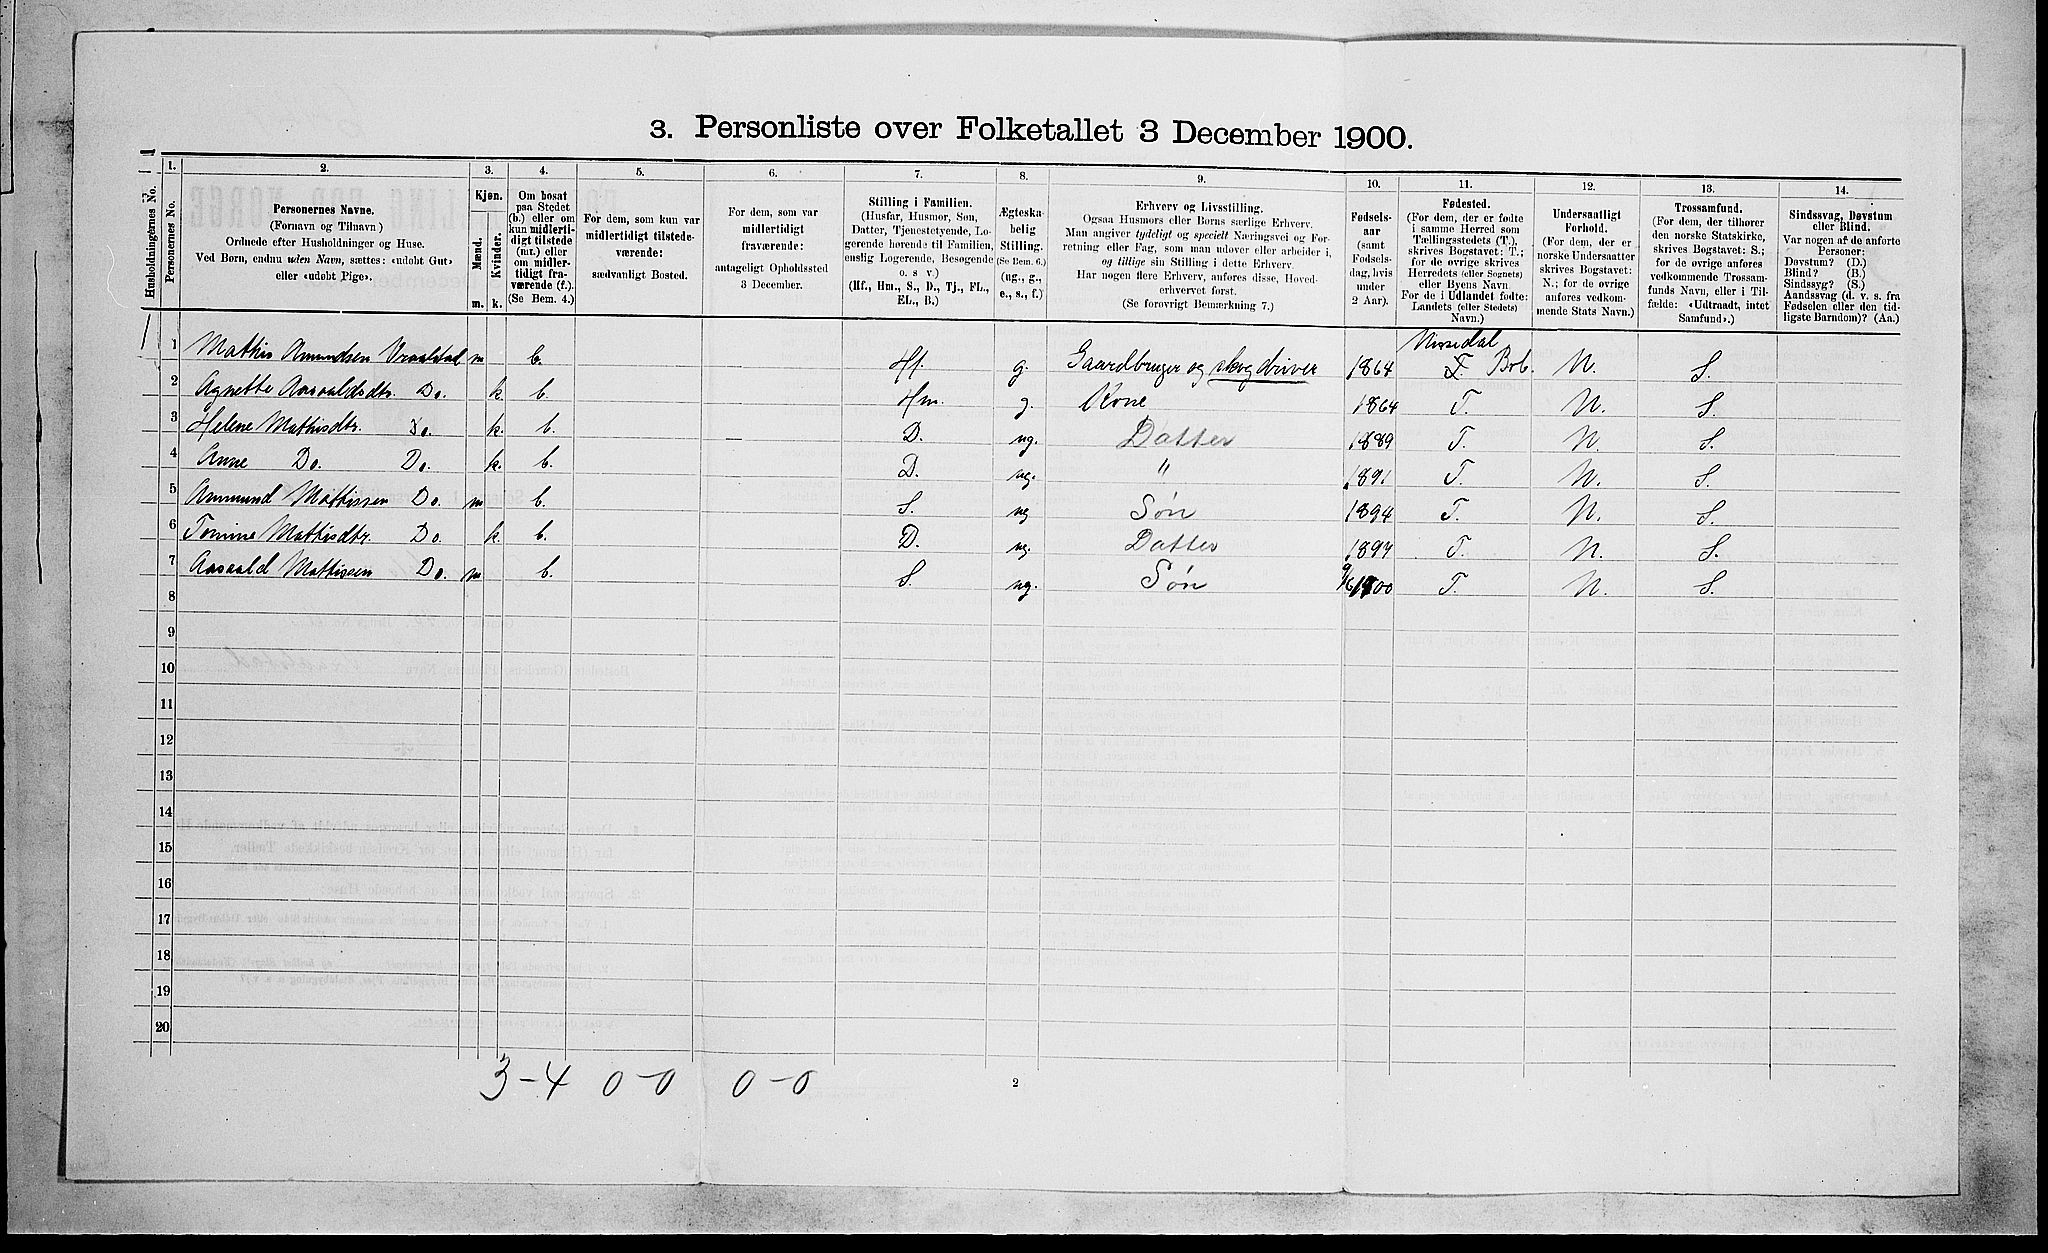 3. Personliste over Folketallet 3 December 1900.
1. 2. 3. 4. 5. 6. 7. 8. 9. 10. 11. 12. 13. 14.
Husholdningernes No.
Personernes No.
Personernes Navne.
(Fornavn og Tilnavn)
Ordnede efter Husholdninger og Huse.
Ved Børn, endnu uden Navn, sættes: «udøbt Gut»
eller «udøbt Pige».
Kjøn.
Mænd.
Kvinder.
m. k.
Om bosat
paa Stedet
(b.) eller om
kun midlerti-
digt tilstede
(mt.) eller
om midler-
tidigt fra-
værende (f.).
(Se Bem. 4.)
For dem, som kun var
midlertidigt tilstede-
værende:
sædvanligt Bosted.
For dem, som var
midlertidigt
fraværende:
antageligt Opholdssted
3 December.
Stilling i Familien.
(Husfar, Husmor, Søn,
Datter, Tjenestetyende, Lo-
gerende hørende til Familien,
enslig Logerende, Besøgende
o. s v.)
(Hf., Hm., S., D., Tj., FL.,
EL., B.)
Ægteska-
belig
Stilling.
(Se Bem. 6.)
(ug., g.,
e., s., f.)
Erhverv og Livsstilling.
Ogsaa Husmors eller Børns særlige Erhverv.
Man angiver tydeligt og specielt Næringsvei og For-
retning eller Fag, som man udøver eller arbeider i,
og tillige sin Stilling i dette Erhverv.
Har nogen flere Erhverv, anføres disse, Hoved-
erhvervet først.
(Se forøvrigt Bemærkning 7.)
Fødsels-
aar
(samt
Fødsels-
dag, hvis
under
2 Aar).
Fødested.
(For dem, der er fødte
i samme Herred som
Tællingsstedets (T.),
skrives Bogstavet: T.;
for de øvrige skrives
Herredets (eller Sognets)
eller Byens Navn.
For de i Udlandet fødte:
Landets (eller Stedets)
Navn.)
Undersaatligt
Forhold.
(For dem, der er
norske Undersaatter
skrives Bogstavet:
N.; for de øvrige
anføres vedkom-
mende Stats Navn.)
Trossamfund.
(For dem, der tilhører
den norske Statskirke,
skrives Bogstavet: S.;
for de øvrige anføres
vedkommende Trossam-
funds Navn, eller i Til-
fælde: «Udtraadt, intet
Samfund».)
Sindssvag, Døvstum
eller Blind.
Var nogen af de anførte
Personer:
Døvstum? (D.)
Blind? (B.)
Sindssyg? (S.)
Aandssvag (d. v. s. fra
Fødselen eller den tid-
ligste Barndom)? (Aa.)
1 1 Mathis Amundsen Vraalstad m b. Hf. g. Gaardbruger og skogdriver 1864 T. Nissedal Brb. N. S.
2 Agnette Aasvaldsdtr. Do. k. b. Hm. g. Kone 1864 T. N. S.
3 Helene Mathisdtr. Do. k. b. D. ug. Datter 1889 T. N. S.
4 Anne Do. Do. k. b. D. ug. " 1891 T. N. S.
5 Ammund Mattissen Do. m b. S. ug Søn 1894 T. N. S.
6 Tomine Mathisdtr. Do. k. b. D. ug. Datter 1897 T. N. S.
7 Aasvald Mattissen Do. m b. S. ug. Søn 9/6 1900 T. N. S.
8
9
10
11
12
13
14
15
16
17
18
19
20
3-4 0-0 0-0
2